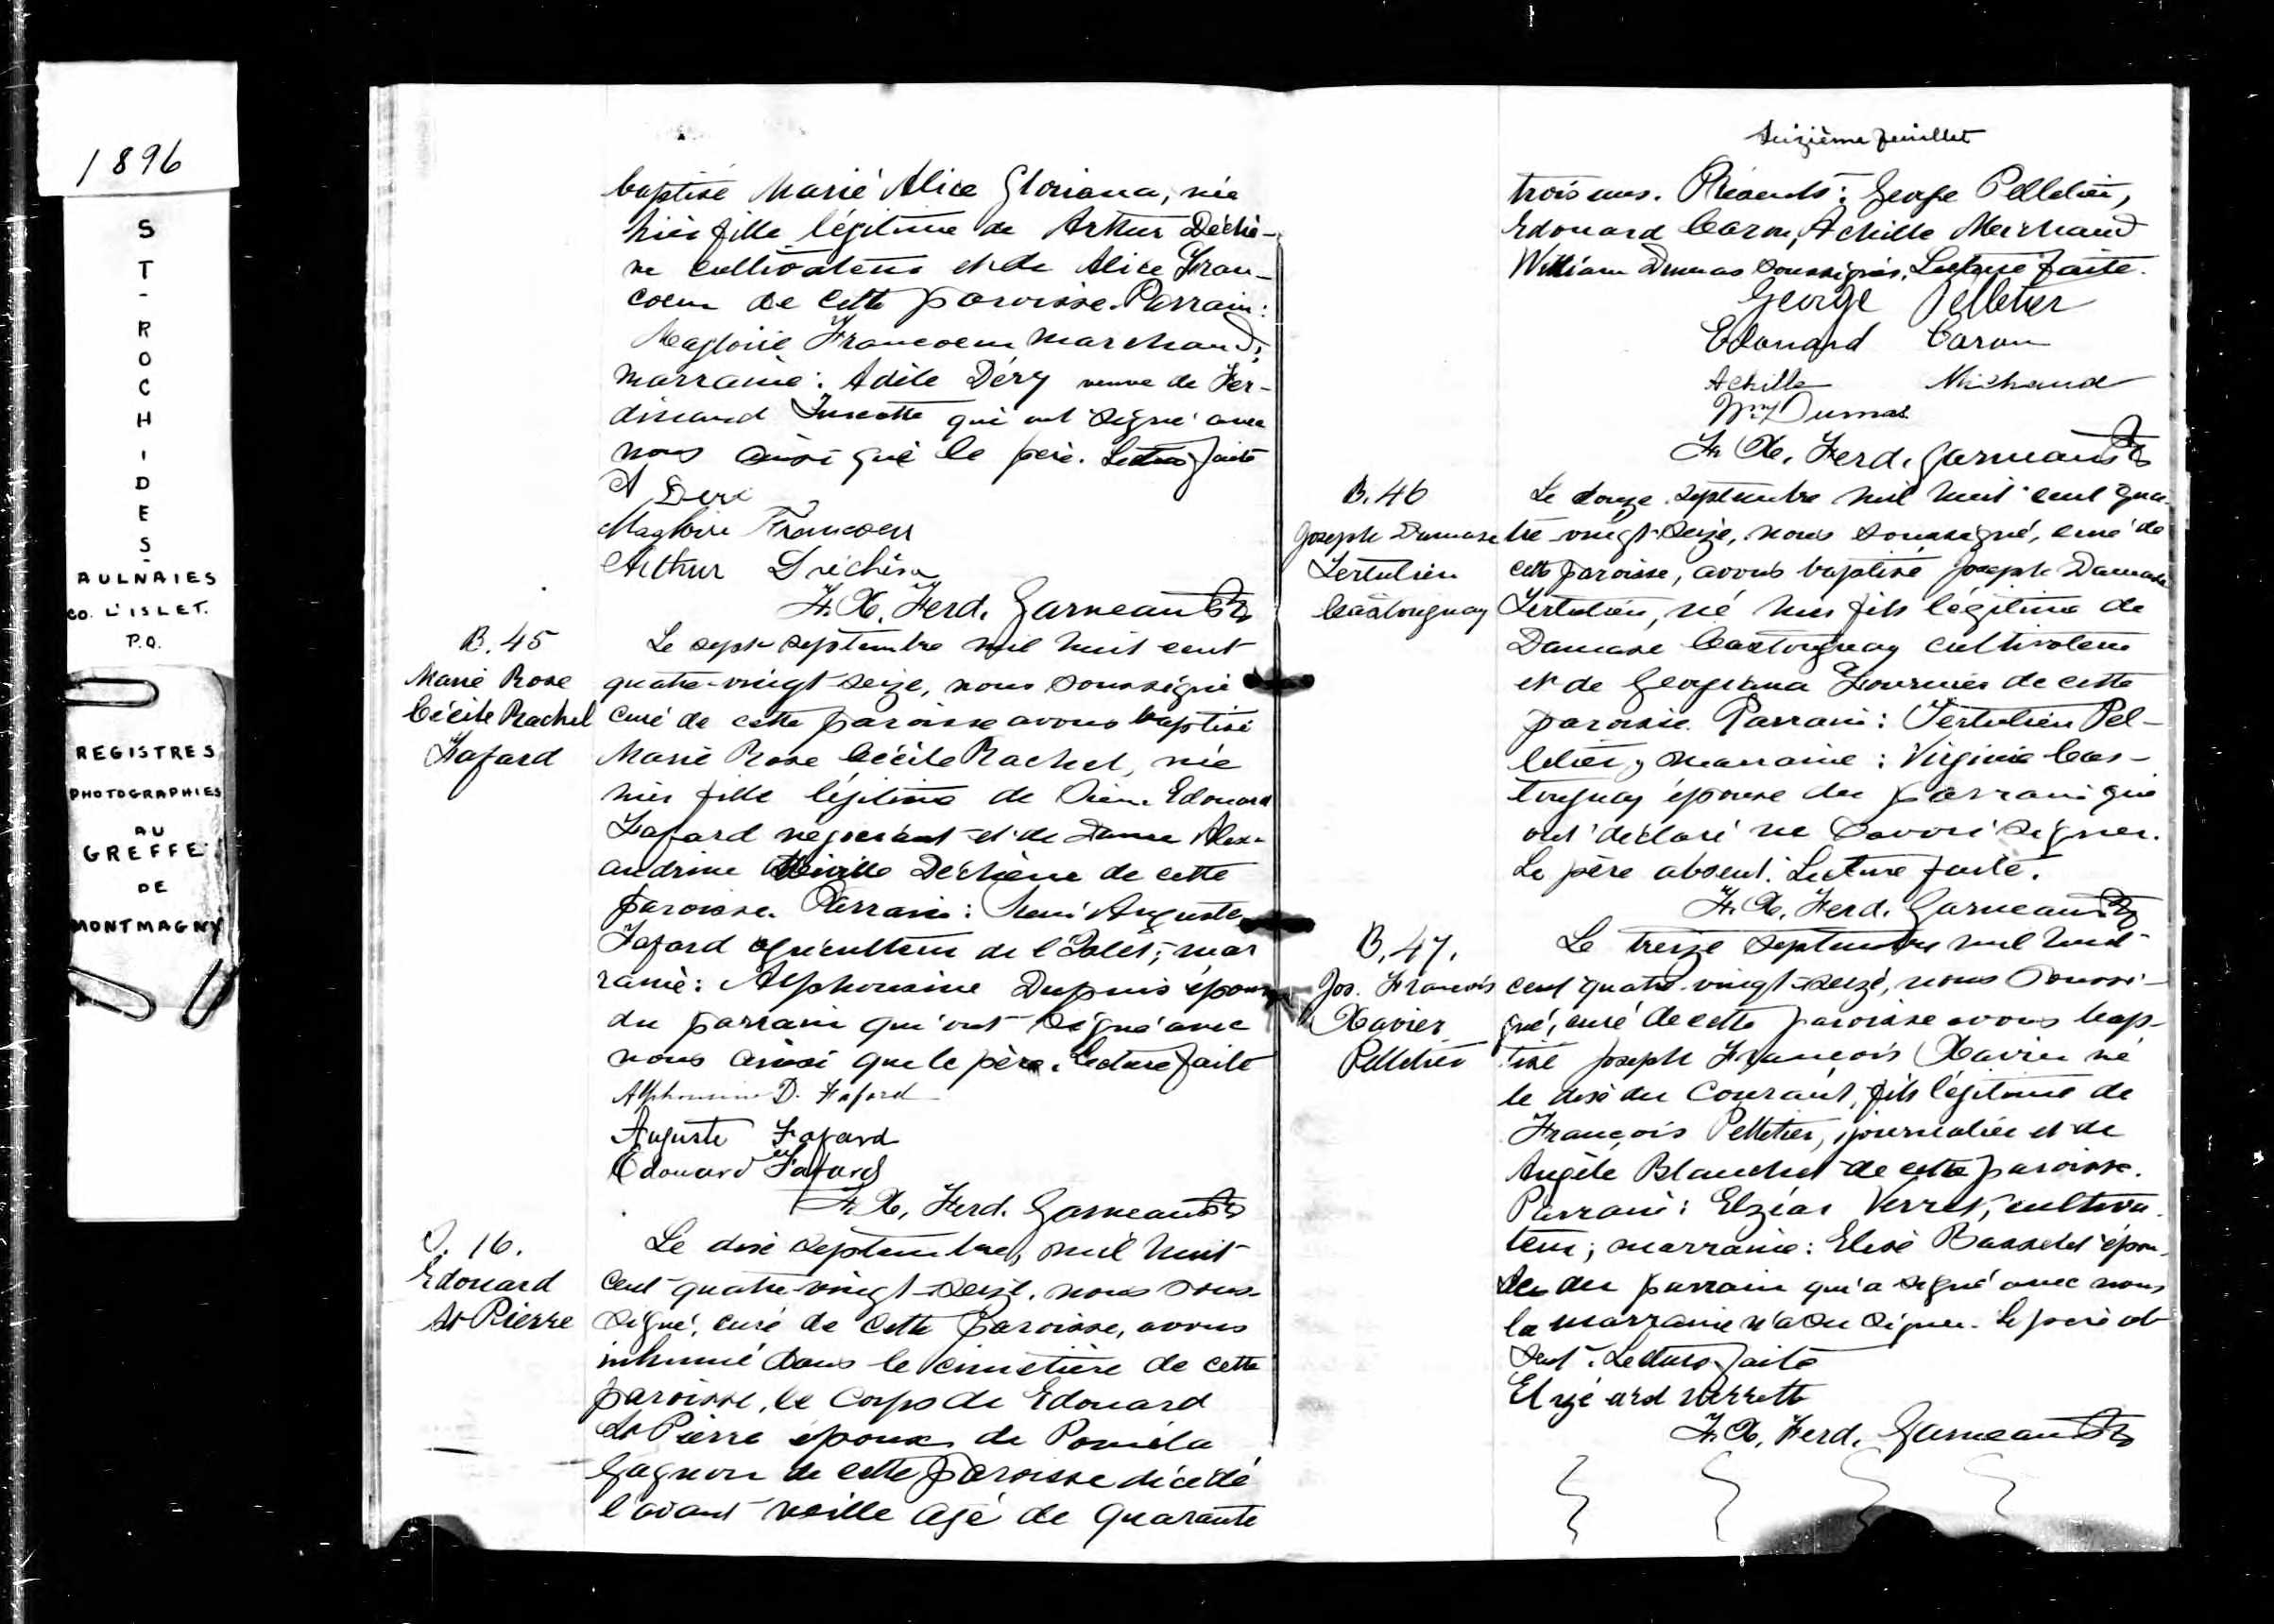 1896
ST-ROCH-DES-
AULNAIES
CO. L'ISLET.
P.Q.
REGISTRES
PHOTOGRAPHIES
AU
GREFFE
DE
MONTMAGNY
baptisé Marie Alice Gloriana, née
hier fille légitime de Arthur Déchê-
ne cultivateur et de Alice Fran-
coeur de cette paroisse. Parrain:
Magloire Francoeur marchand;
marraine: Adèle Déry veuve de Fer-
dinand qui ont signé avec
nous ainsi que le père. Lecture faite
Magloire Francoeur
Arthur Dechêne
F. X. Ferd. Garneau Ptr
B. 45
Marie Rose
Cécile Rachel
Fafard
Le sept septembre mil huit cent
quatre-vingt-seize, nous soussigné
curé de cette paroisse avons baptisé
Marie Rose Cécile Rachel, née
hier fille légitime de Sieur Edouard
Fafard négociant et de Dame Alex-
andrine Miville Déchêne de cette
paroisse. Parrain: Auguste
Fafard agriculteur de l'Islet; mar
raine: Alphonsine Dupuis épouse
du parrain qui ont signé avec
nous ainsi que le père. Lecture faite
Alphonsine D. Fafard
Auguste Fafard
Edouard Fafard
F. X. Ferd. Garneau Ptr
S. 16.
Edouard
St Pierre
Le dix septembre, mil huit
cent quatre-vingt-seize, nous sous-
signé, curé de cette paroisse, avons
inhumé dans le cimetière de cette
paroisse, le corps de Edouard
St Pierre époux de Paméla
Gagnon de cette paroisse décédé
l'avant veille agé de quarante
Seizième feuillet
trois ans. Présents: George Pelletier,
Edouard Caron, Achille Michaud
William Dumas soussignés. Lecture faite.
George Pelletier
Edouard Caron
Achille Michaud
Wm Dumas
F. X. Ferd. Garneau Ptr
B. 46
Joseph Damase
Tertulien
Castonguay
Le douze septembre mil huit cent qua-
tre-vingt-seize, nous soussigné, curé de
cette paroisse, avons baptisé Joseph Damase
Tertulien, né hier fils légitime de
Damase Castonguay cultivateur
et de Georgiana Fournier de cette
paroisse. Parrain: Tertulien Pel-
letier, marraine: Virginie Cas-
tonguay épouse du parrain qui
ont déclaré ne savoir signer.
Le père absent. Lecture faite.
F. X. Ferd. Garneau Ptr
B. 47.
Jos. François
Xavier
Pelletier
Le treize septembre mil huit
cent quatre-vingt-seize, nous soussi-
gné, curé de cette paroisse avons bap-
tisé Joseph François Xavier né
le dix du courant, fils légitime de
François Pelletier, journalier et de
Angèle Blanchet de cette paroisse.
Parrain: Elzéar Verret, cultiva-
teur; marraine: Elise Basselet épou-
se du parrain qui a signé avec nous
la marraine n'a su signer. Le père ab
sent. Lecture faite
Elzé ard verrette
F. X. Ferd. Garneau Ptr